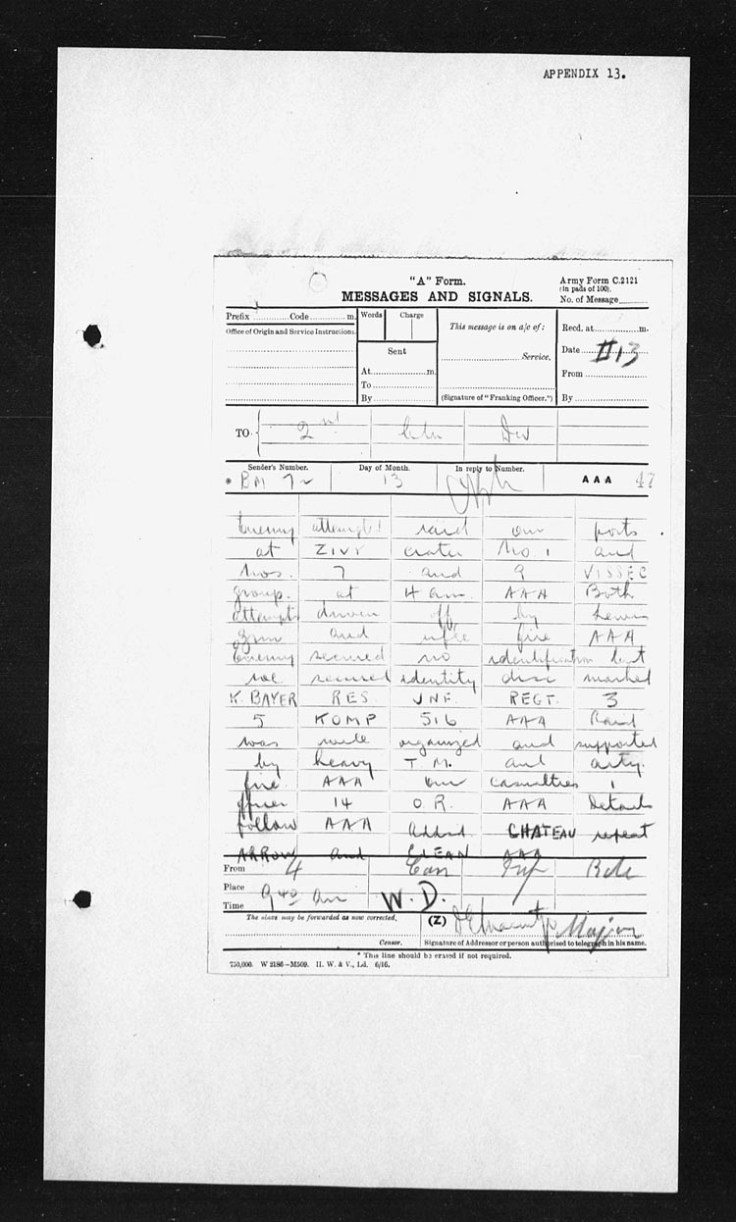 APPENDIX 13.
"A" Form.
Army Form C.2121
MESSAGES AND SIGNALS.
(in pads of 100).
No. of Message
Prefix Code m.
Words Charge
This message is on a/c of:
Recd. at m.
Office of Origin and Service Instructions.
Sent
Date #13
At m.
Service.
From
To
By
(Signature of "Franking Officer.")
By
TO 2nd Cdn Div
Sender's Number. Day of Month. In reply to Number. AAA 47
* BM 72 13
Enemy attempted raid our posts
at ZIVY crater No. 1 and
Nos. 7 and 9 VISSEC
group. at 4 am. AAA Both
attempts driven off by Lewis
gun and rifle fire AAA
Enemy secured no identification but
we secured identity disc marked
K. BAYER RES INF. REGT. 3
5 KOMP 516 AAA Raid
was well organized and supported
by heavy T.M. and arty.
fire AAA our casualties 1
officer 14 O.R. AAA Details
follow AAA Addsd CHATEAU repeat
ARROW and CLEAN AAA
From 4 Can Inf Bde
Place
Time 9 40 am W.D.
The above may be forwarded as now corrected. (Z) Major
Censor. Signature of Addressor or person authorised to telegraph in his name.
* This line should be erased if not required.
750,000. W 2186—M509. H. W. & V., Ld. 6/16.